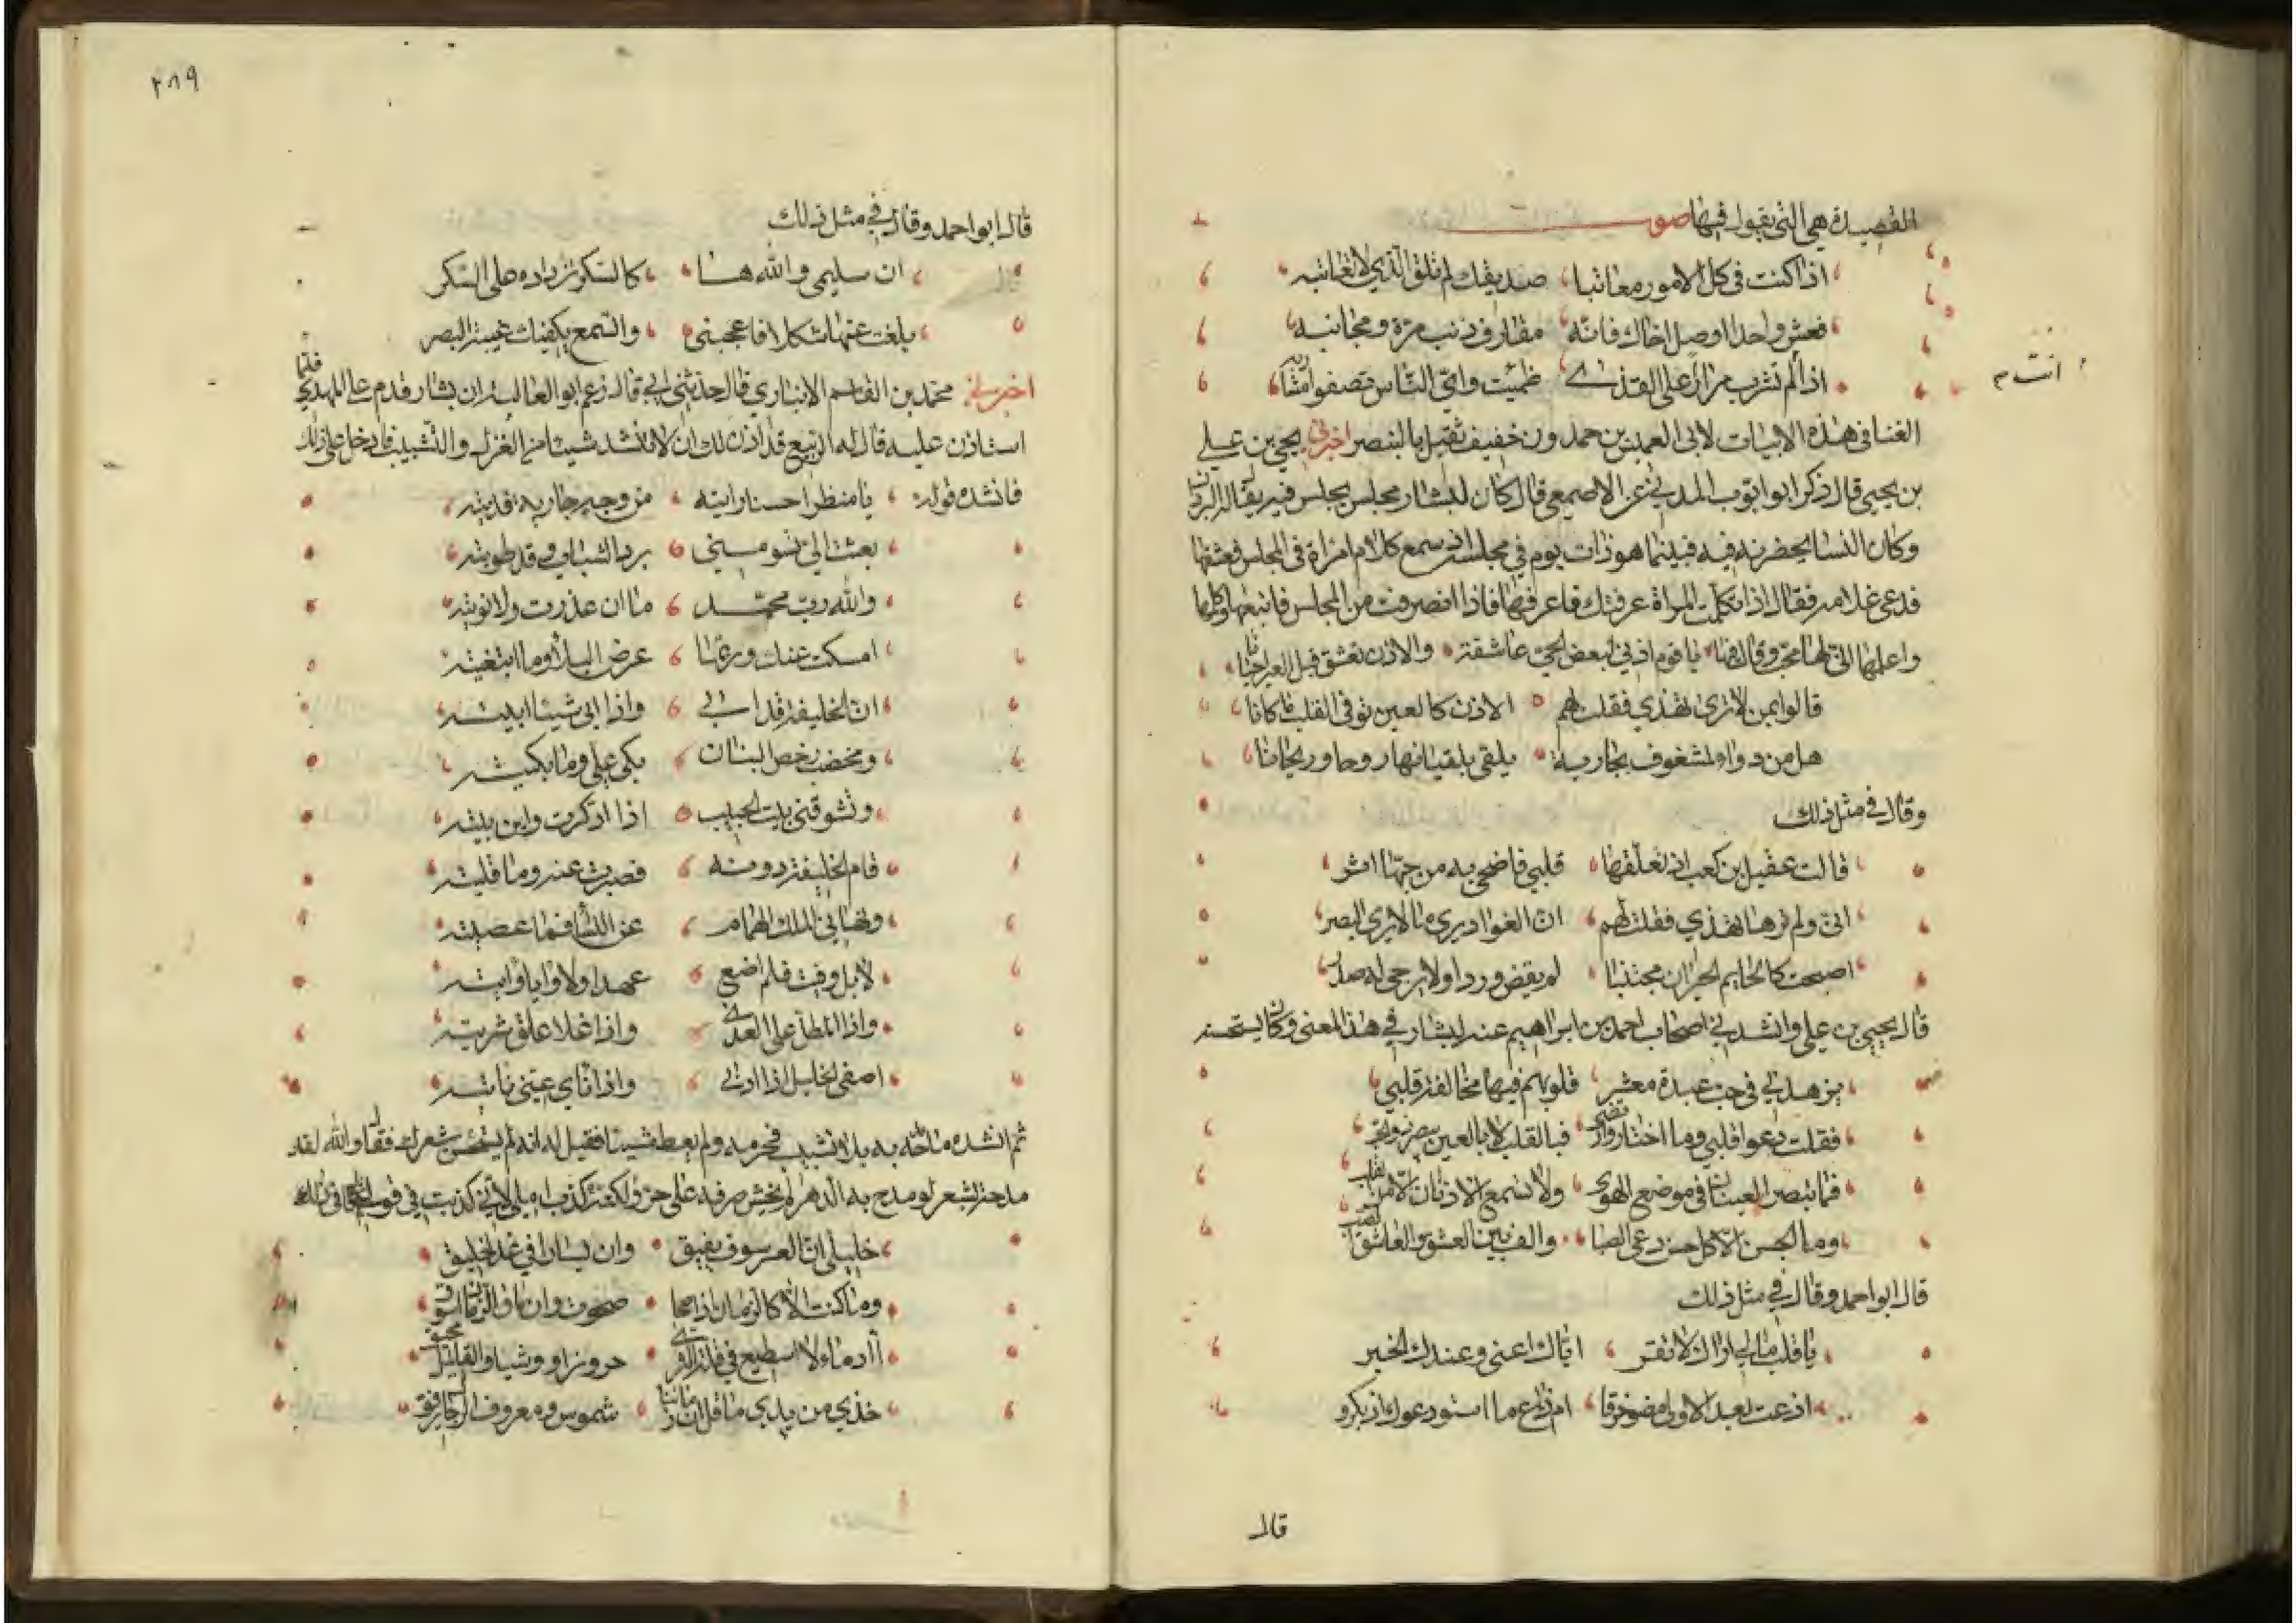 القصيدة هي التي يقول فيها صوت
اذا كنت في كل الامور معاتبا صديقك لم تلق الذي لا تعاتبه
فعش واحدا او صل اخاك فانه مقارف ذنب مرة ومجانبه
اذا لم تشرب مرارا على القذى ظمئت واي الناس تصفو مشاربه
انت م
الغنا في هذه الابيات لابي العميس بن حمدون خفيف ثقيل بالبنصر اخبرني يحيى بن علي
بن يحيى قال ذكر ابو ايوب المديني عن الاصمعي قال كان لبشار مجلس يجلس فيه يقال له البردان
وكان النسا يحضرنه فيه فبينما هو ذات يوم في مجلسه اذ سمع كلام امراة في المجلس فعشقها
فدعى غلامه فقال اذا تكلمت المراة عرفتك فاعرفها فاذا انصرفت من المجلس فاتبعها وكلمها
واعلمها اني لها محب وقال فيها يا قوم اذني لبعض الحي عاشقة والاذن تعشق قبل العين احيانا
قالوا بمن لا ترى تهذي فقلت لهم الاذن كالعين توفي القلب ما كانا
هل من دواء لمشغوف بجارية يلقى بلقيانها روحا وريحانا
وقال في مثل ذلك
قالت عقيل بن كعب اذ تعلقها قلبي فاضحى به من حبها اثر
انى ولم ترها تهذي فقلت لهم ان الفواد يرى ما لا يرى البصر
اصبحت كالحايم الحيران مجتنبا لم يقض وردا ولا يرجى له صدر
قال يحيى بن علي وانشدني اصحاب احمد بن ابراهيم عنه لبشار في هذا المعنى وكان يستحسنه
يزهدني في حب عبدة معشر قلوبهم فيها مخالفة قلبي
فقلت دعوا قلبي وما اختار وارتضى فبالقلب لا بالعين يبصر ذو الحب
فما تبصر العينان في موضع الهوى ولا تسمع الاذنان الا من القلب
وما الحسن الا كل حسن دعى الصبا والف بين العشق والعاشق الصب
قال ابو احمد وقال في مثل ذلك
يا قلب مالي اراك لا تقر اياك اعني وعندك الخبر
اذعت بعد الاولى مضوا حرقا ام ضاع ما استودعوك اذ بكروا
قال
٢٨٩
قال ابو احمد وقال في مثل ذلك
ان سليمى والله كالسكر تزداده على السكر
بلغت عنها شكلا فاعجبني والسمع يكفيك غيبة البصر
اخبرني محمد بن القاسم الانباري قال حدثني ابي قال زعم ابو العالية ان بشار قدم على المهدي فلما
استاذن عليه قال له الربيع قد اذن لك ان لا تنشد شيئا من الغزل والتشبيب فادخل على ذلك
فانشده قوله يا منظرا حسنا رايته من وجه جارية فديته
بعثت الي تسومني برد الشباب وقد طويته
والله رب محمد ما ان غدرت ولا نويته
امسكت عنك وربما عرض البلا وما ابتغيته
ان الخليفة قد ابى واذا ابى شيئا ابيته
ومخضب رخص البنان بكى علي وما بكيته
وتشوقني بيت الحبيب اذا ادكرت واين بيته
قام الخليفة دونه فصبرت عنه وما قليته
ونهاني الملك الهمام عن النسا فما عصيته
لا بل وفيت فلم اضع عهدا ولا وايا وايته
وانا المطل على العدى واذا غلا علق شريته
اصفي الخليل اذا دنى واذا ناى عني نايته
ثم انشده ما مدحه به بلا تشبيب فحرمه ولم يعطه شيئا فقيل له انه لم يستحسن شعرك فقال والله لقد
مدحته بشعر لو مدح به الدهر لم يخش صرفه على حر ولكنه كذب املي لاني كذبت في قولي
خليلي ان العسر سوف يفيق وان يسارا في غد لخليق
وما كنت الا كالزمان اذا صحا صحوت وان ماق الزمان اموق
أأدماء لا اسطيع في قلة الثرى خزوز او وشيا والقليل محيق
خذي من يدي ما قل ان زماننا شموس ومعروف الرجال رقيق